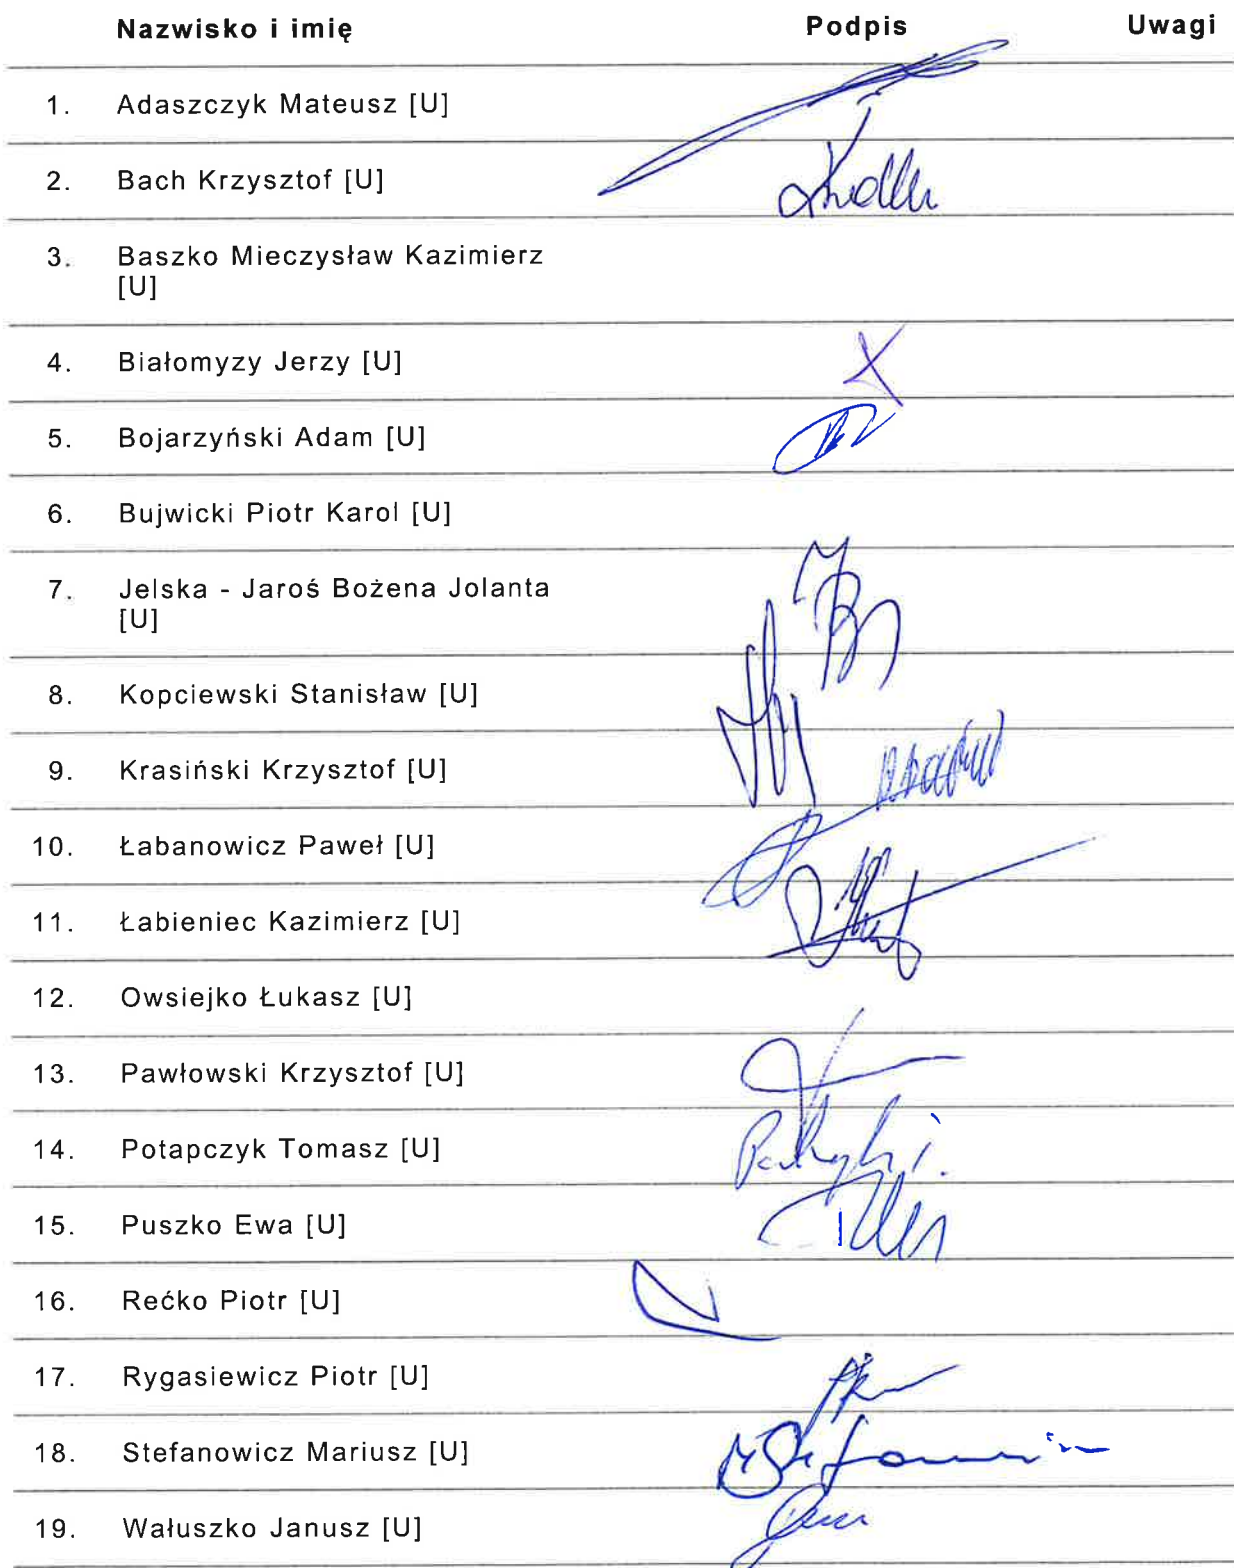 Nazwisko i imię Podpis Uwagi
1. Adaszczyk Mateusz [U]
2. Bach Krzysztof [U]
3. Baszko Mieczysław Kazimierz
[U]
4. Białomyzy Jerzy [U]
5. Bojarzyński Adam [U]
6. Bujwicki Piotr Karol [U]
7. Jelska - Jaroś Bożena Jolanta
[U]
8. Kopciewski Stanisław [U]
9. Krasiński Krzysztof [U]
10. Łabanowicz Paweł [U]
11. Łabieniec Kazimierz [U]
12. Owsiejko Łukasz [U]
13. Pawłowski Krzysztof [U]
14. Potapczyk Tomasz [U]
15. Puszko Ewa [U]
16. Rećko Piotr [U]
17. Rygasiewicz Piotr [U]
18. Stefanowicz Mariusz [U]
19. Wałuszko Janusz [U]